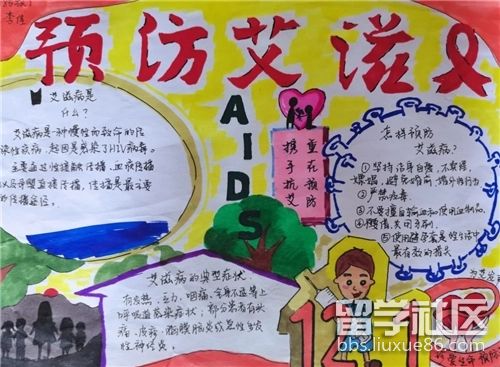 预防艾滋
AIDS
艾滋病是
什么？
艾滋病是一种慢性而致命的传
染性疾病，起因是感染了HIV病毒。
主要通过性接触传播、血液传播
以及母婴直接传播，
重在预防
携手抗艾
怎样预防
艾滋病？
①坚持洁身自爱，不卖淫、
嫖娼，避免婚前、婚外性行为
②严禁吸毒
③不要擅自输血和使用血制品，
⑤使用避孕套是性生活中
最有效的
艾滋病的典型症状
有发热、乏力、咽痛、全身不适等上
呼吸道感染症状；部分患者有头
痛、皮疹、脑膜脑炎或急性多发
性神经炎。
12.1
留学社区
bbs.liuxue86.com